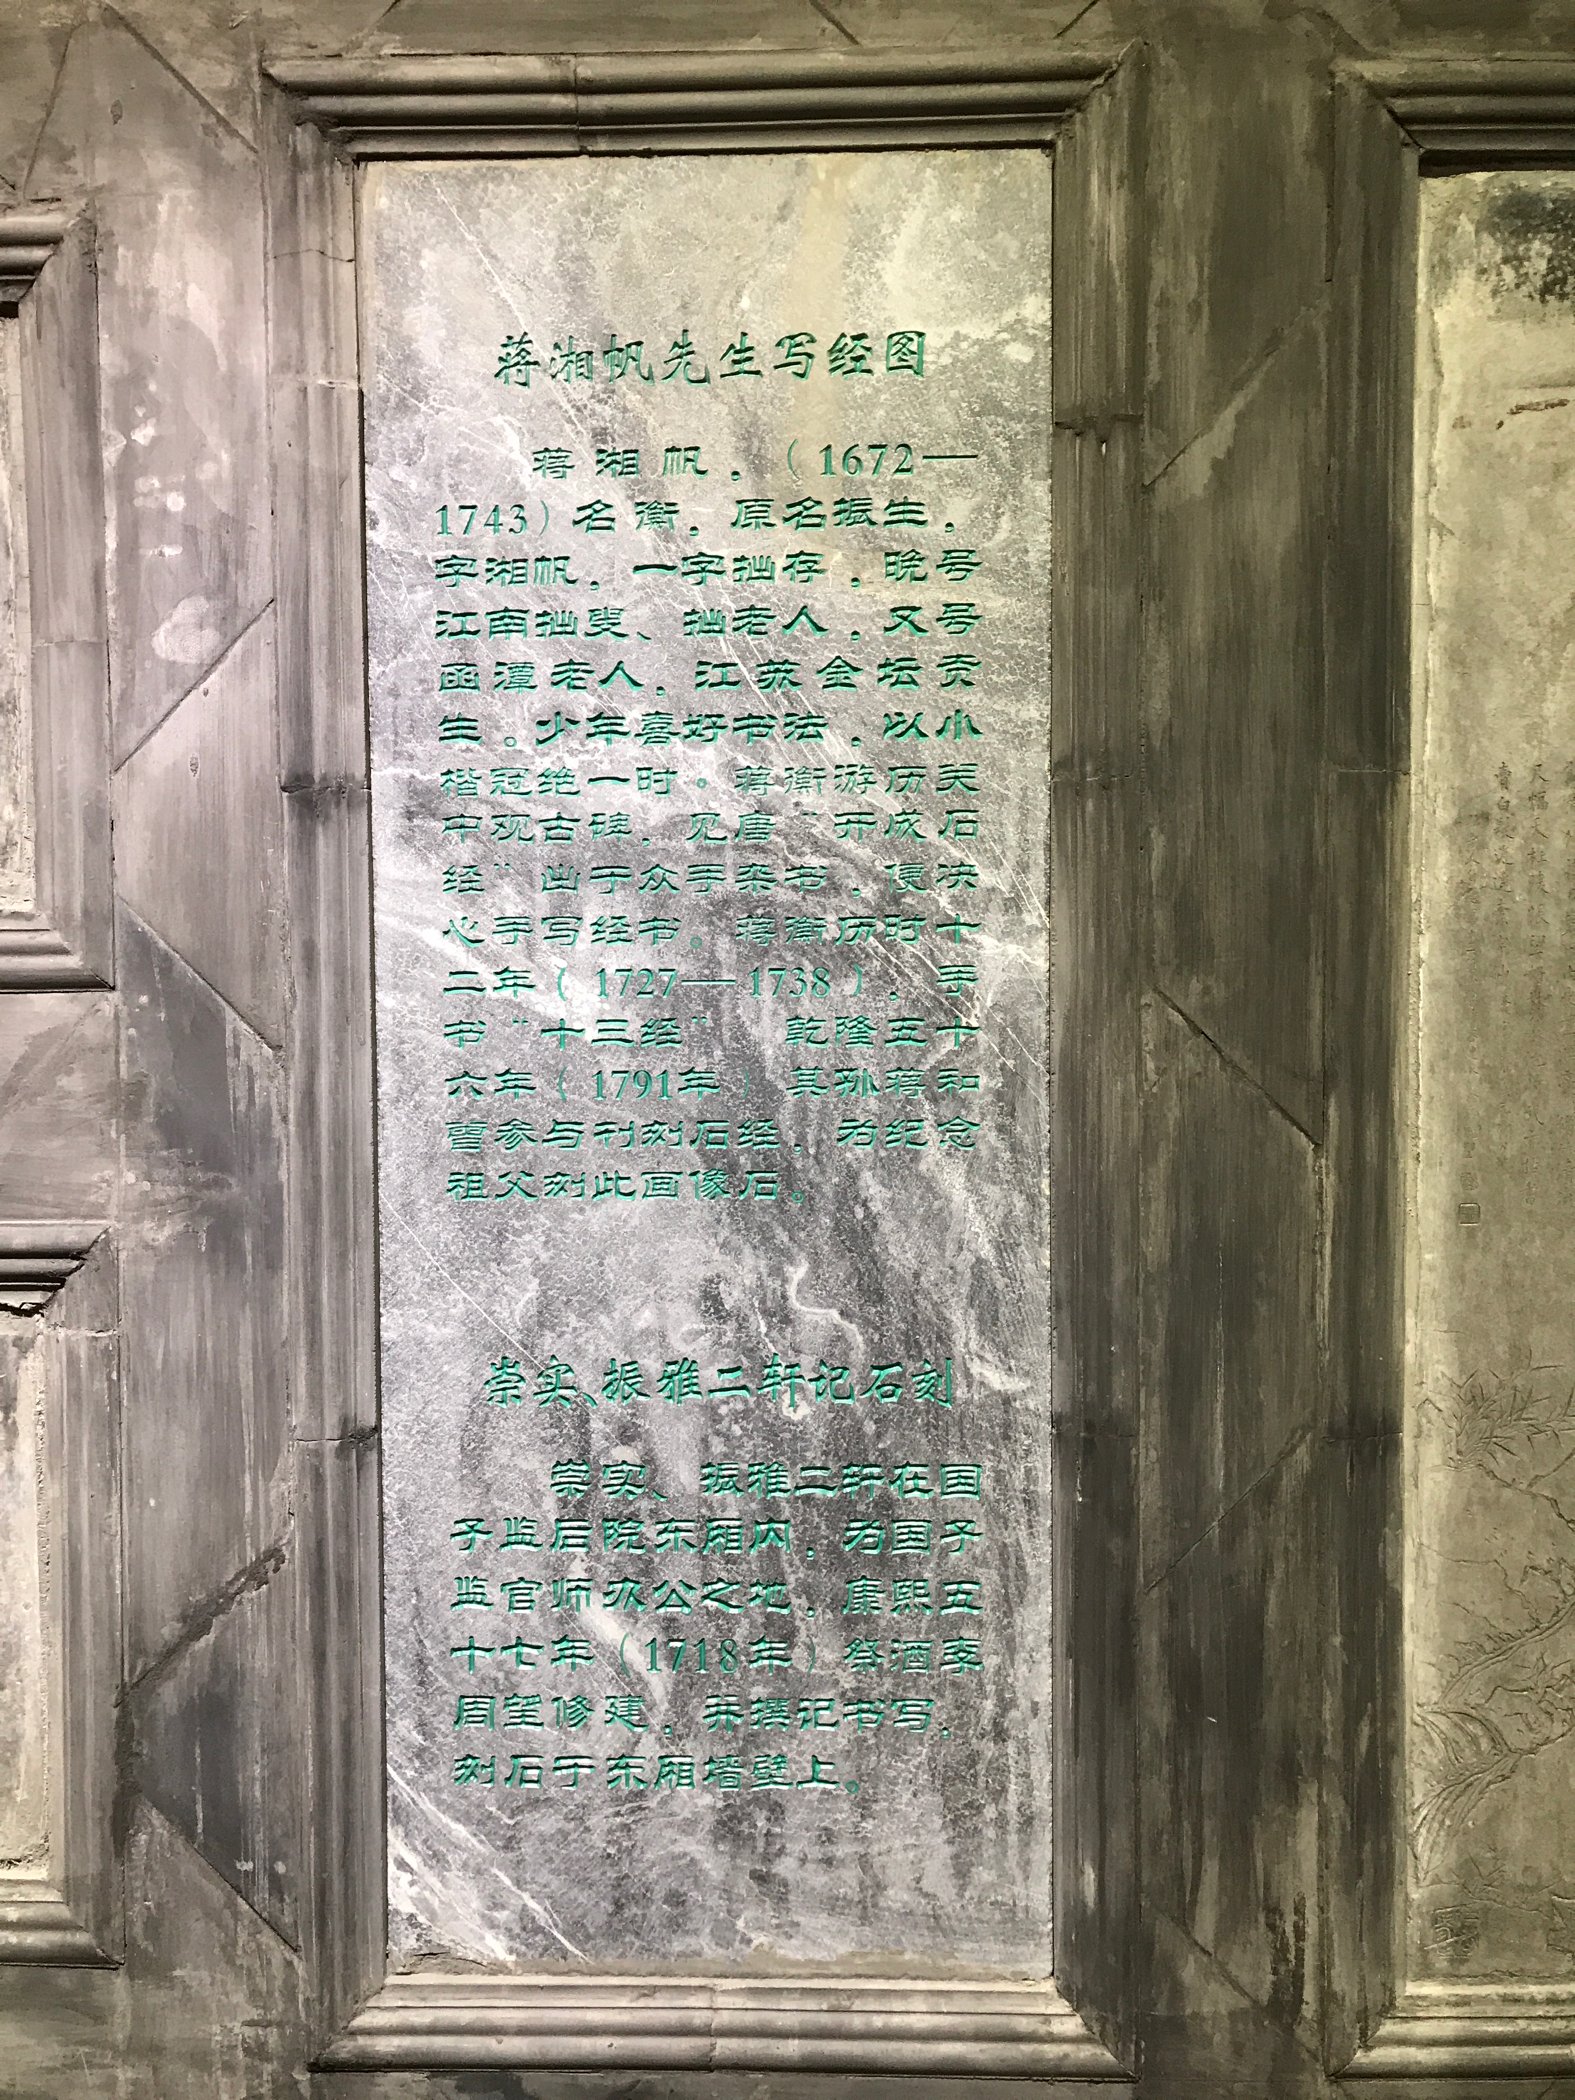 蒋湘帆先生写经图
蒋湘帆，（1672—
1743）名衡，原名振生，
字湘帆，一字拙存，晚号
江南拙叟、拙老人，又号
函潭老人，江苏金坛贡
生。少年喜好书法，以小
楷冠绝一时。蒋衡游历关
中观古碑，见唐“开成石
经”出于众手杂书，便决
心手写经书。蒋衡历时十
二年（1727—1738），手
书“十三经” 乾隆五十
六年（1791年）其孙蒋和
曾参与刊刻石经，为纪念
祖父刻此画像石。
崇实、振雅二轩记石刻
崇实、振雅二轩在国
子监后院东厢内，为国子
监官师办公之地，康熙五
十七年（1718年）祭酒李
周望修建，并撰记书写，
刻石于东厢墙壁上。